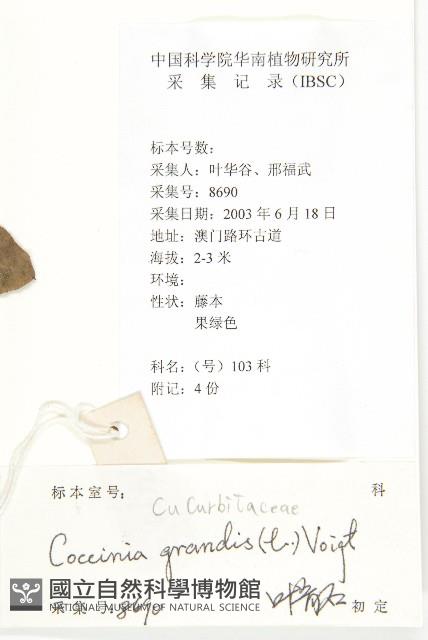 中国科学院华南植物研究所
采 集 记 录（IBSC）
标本号数：
采集人：叶华谷、邢福武
采集号：8690
采集日期：2003 年 6 月 18 日
地址：澳门路环古道
海拔：2-3 米
环境：
性状：藤本
果绿色
科名：（号）103 科
附记：4 份
标本室号： 科
Cucurbitaceae
Coccinia grandis (L.) Voigt
國立自然科學博物館
NATIONAL MUSEUM OF NATURAL SCIENCE
采集号 8690 初定